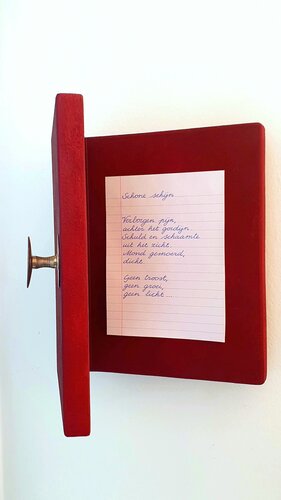 Schone schijn
Verborgen pijn,
achter het gordijn.
Schuld en schaamte
uit het zicht.
Mond gesnoerd,
dicht.
Geen troost,
geen groei,
geen licht...